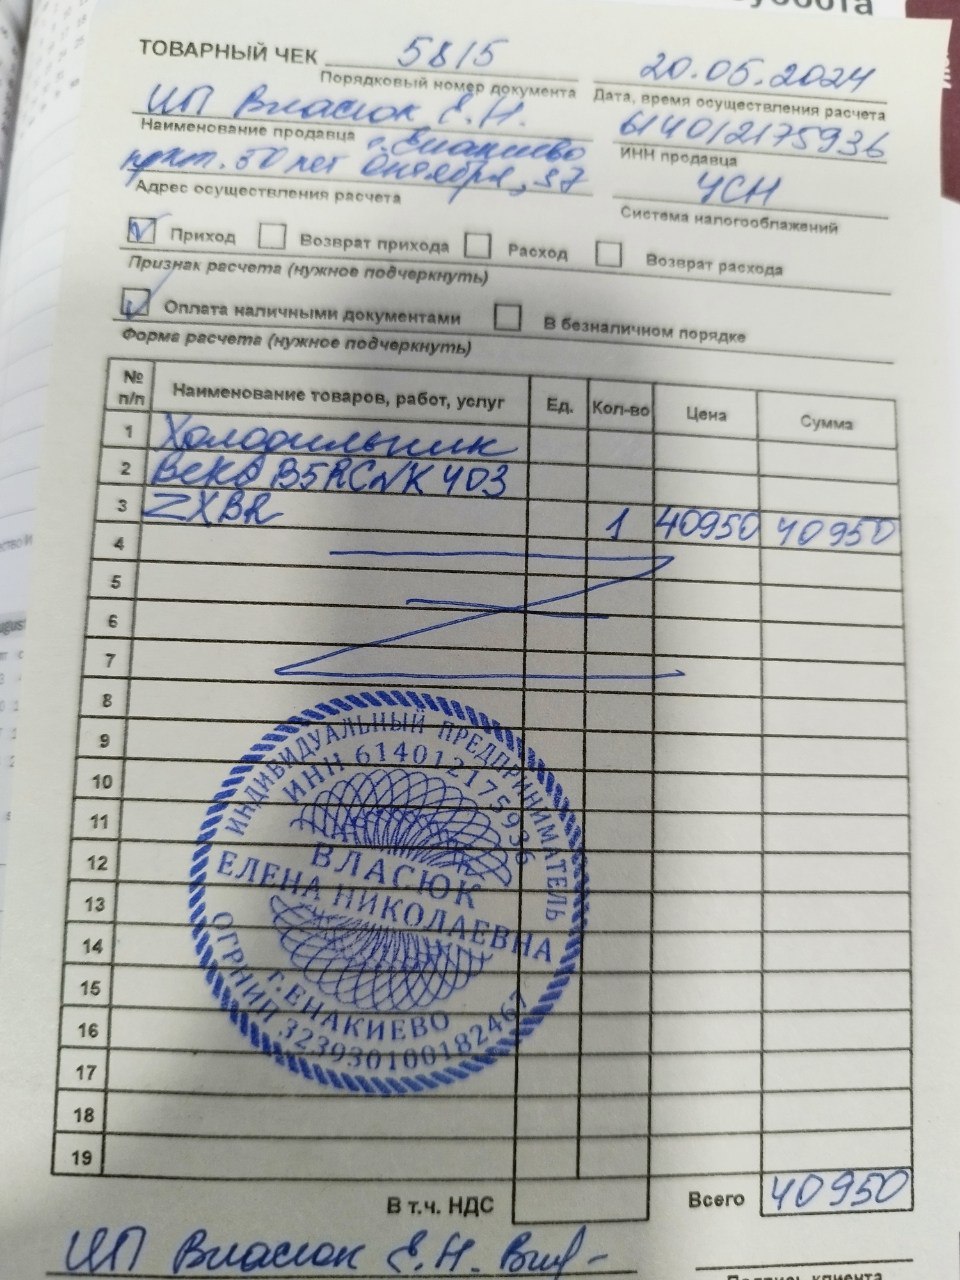 суббота
ТОВАРНЫЙ ЧЕК 5815 20.05.2024
Порядковый номер документа Дата, время осуществления расчета
ИП Власюк Е.Н. 614012175936
Наименование продавца г. Енакиево ИНН продавца
пркт. 50 лет Октября, 37 УСН
Адрес осуществления расчета Система налогообложений
Приход Возврат прихода Расход Возврат расхода
Признак расчета (нужное подчеркнуть)
Оплата наличными документами В безналичном порядке
Форма расчета (нужное подчеркнуть)
№ п/п Наименование товаров, работ, услуг Ед. Кол-во Цена Сумма
1 Холодильник
2 Веко B5RCNK 403
3 ZXBR 1 40950 40950
4
5
6
7
8
9
10
11
12
13
14
15
16
17
18
19
ИНДИВИДУАЛЬНЫЙ ПРЕДПРИНИМАТЕЛЬ
ИНН 614012175936
ВЛАСЮК
ЕЛЕНА НИКОЛАЕВНА
г.ЕНАКИЕВО
ОГРНИП 323930100182467
В т.ч. НДС Всего 40950
ИП Власюк Е.Н.
Подпись клиента